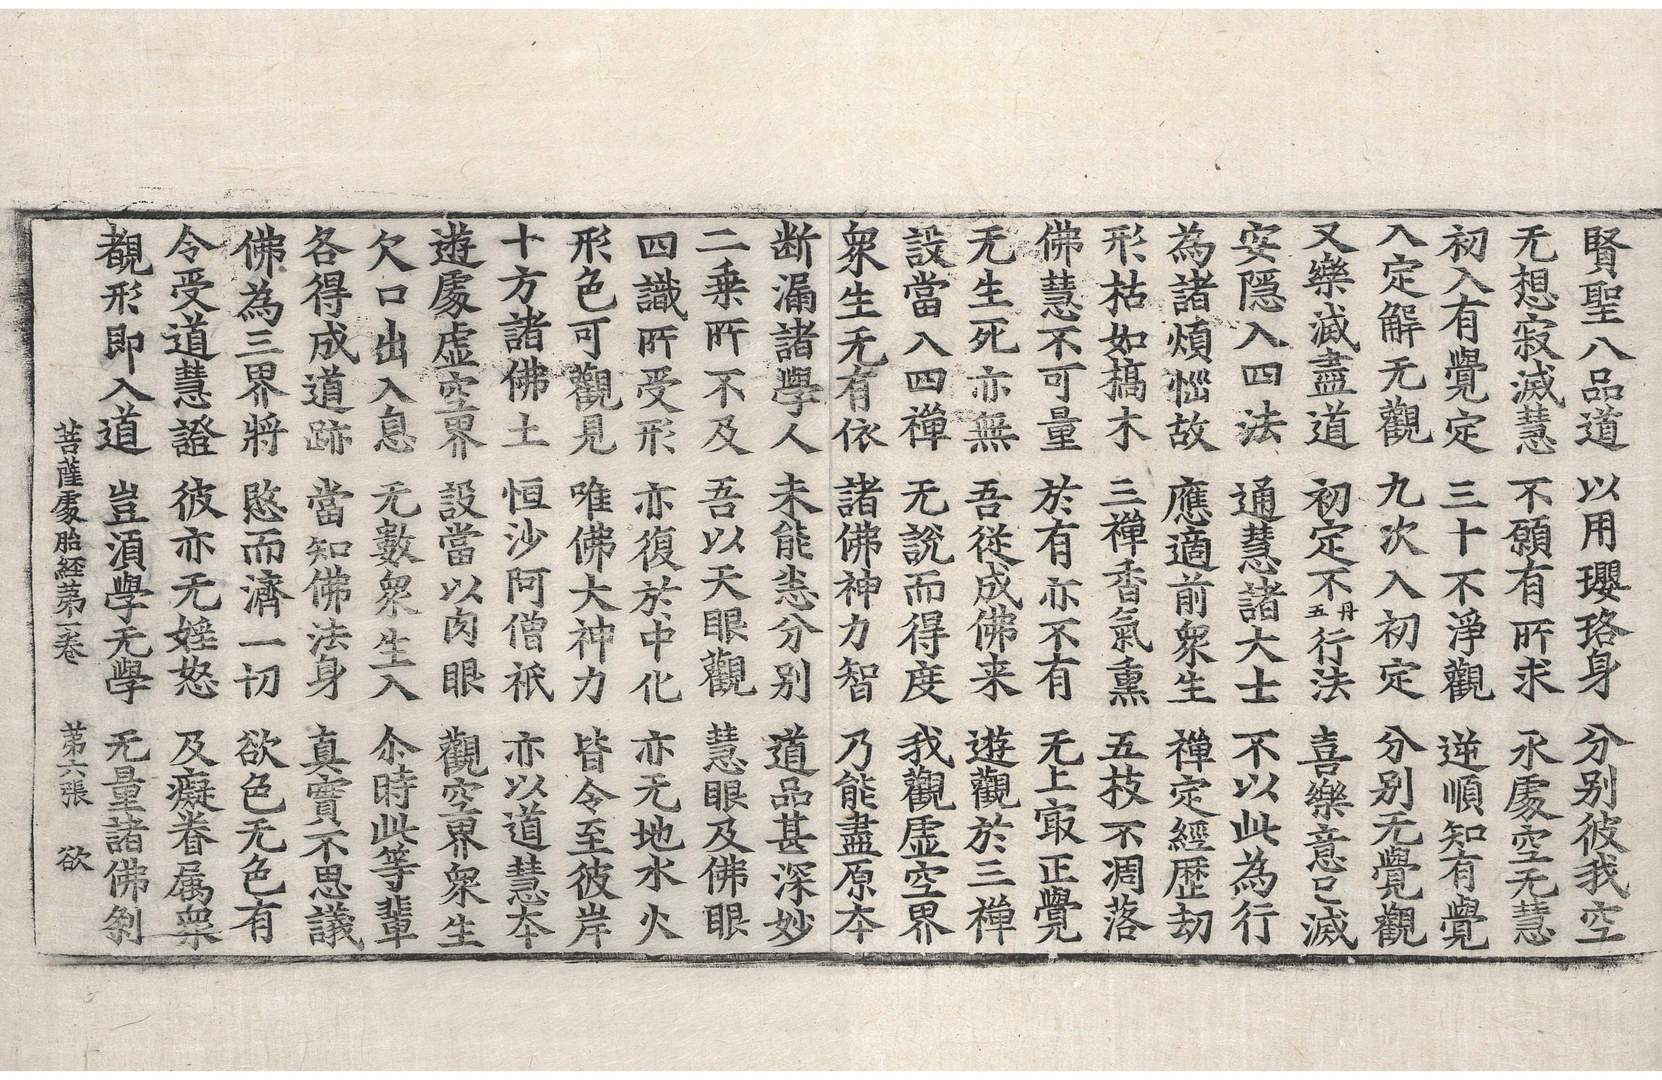 賢聖八品道 以用瓔珞身 分別彼我空
无想寂滅慧 不願有所求 永處空无慧
初入有覺定 三十不淨觀 逆順知有覺
入定解无觀 九次入初定 分別无覺觀
又樂滅盡道 初定不丹五行法 喜樂意已滅
安隱入四法 通慧諸大士 不以此為行
為諸煩惱故 應適前衆生 禪定經歷劫
形枯如槁木 三禪香氣熏 五枝不凋落
佛慧不可量 於有亦不有 无上㝡正覺
无生死亦無 吾從成佛来 遊觀於三禪
設當入四禪 无說而得度 我觀虛空界
衆生无有依 諸佛神力智 乃能盡原本
断漏諸學人 未能悉分別 道品甚深妙
二乗所不及 吾以天眼觀 慧眼及佛眼
四識所受形 亦復於中化 亦无地水火
形色可觀見 唯佛大神力 皆令至彼岸
十方諸佛土 恒沙阿僧祇 亦以道慧本
遊處虛空界 設當以肉眼 觀空界衆生
欠口出入息 无數衆生入 尒時此等軰
各得成道跡 當知佛法身 真實不思議
佛為三界將 愍而濟一切 欲色无色有
令受道慧證 彼亦无婬怒 及癡眷属衆
覩形即入道 豈湏學无學 无量諸佛刹
菩薩處胎經第一卷 第六張 欲